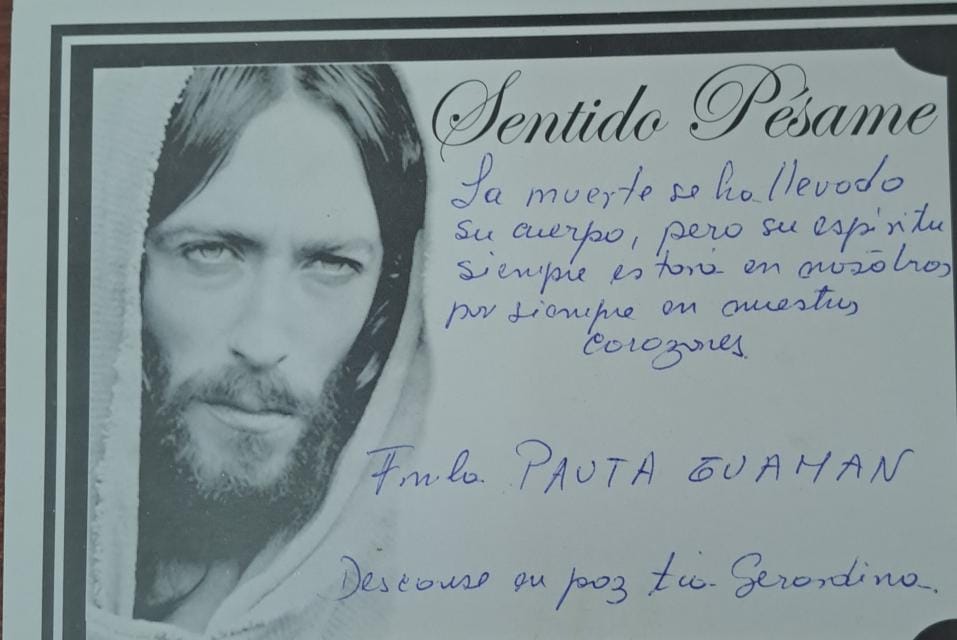 Sentido Pésame
La muerte se ha llevado
su cuerpo, pero su espíritu
siempre estará en nosotros
por siempre en nuestros
corazones.
Fmla PAUTA GUAMAN
Descanse en paz tia Gerardina.